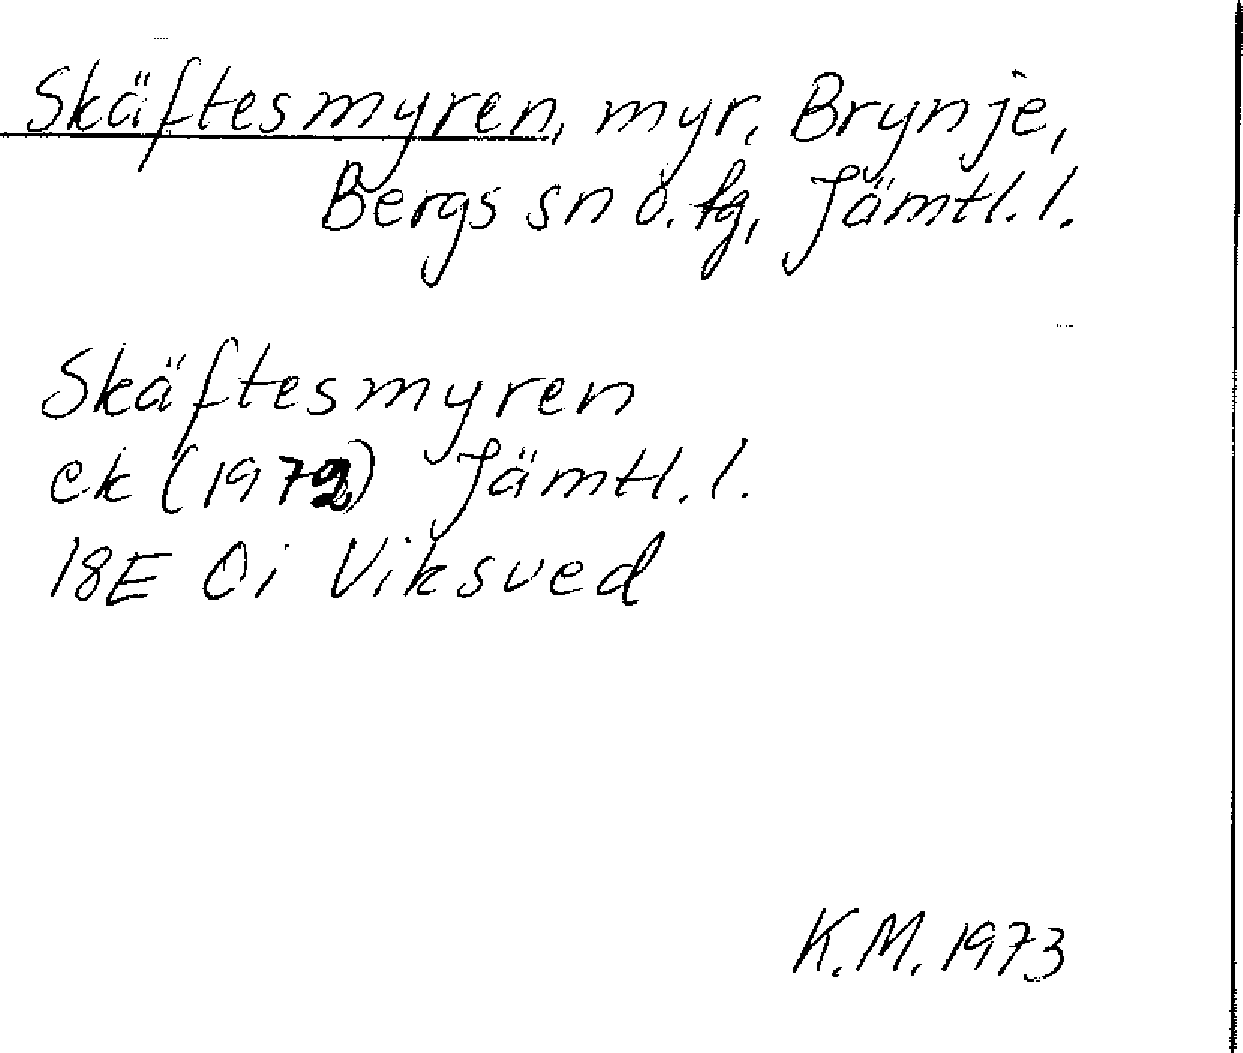 Skäftesmyren, myr, Brynje,
Bergs sn o. fg, Jämtl. l.
Skäftesmyren
ek (1972) Jämtl. l.
18E 0i Viksved
K.M. 1973